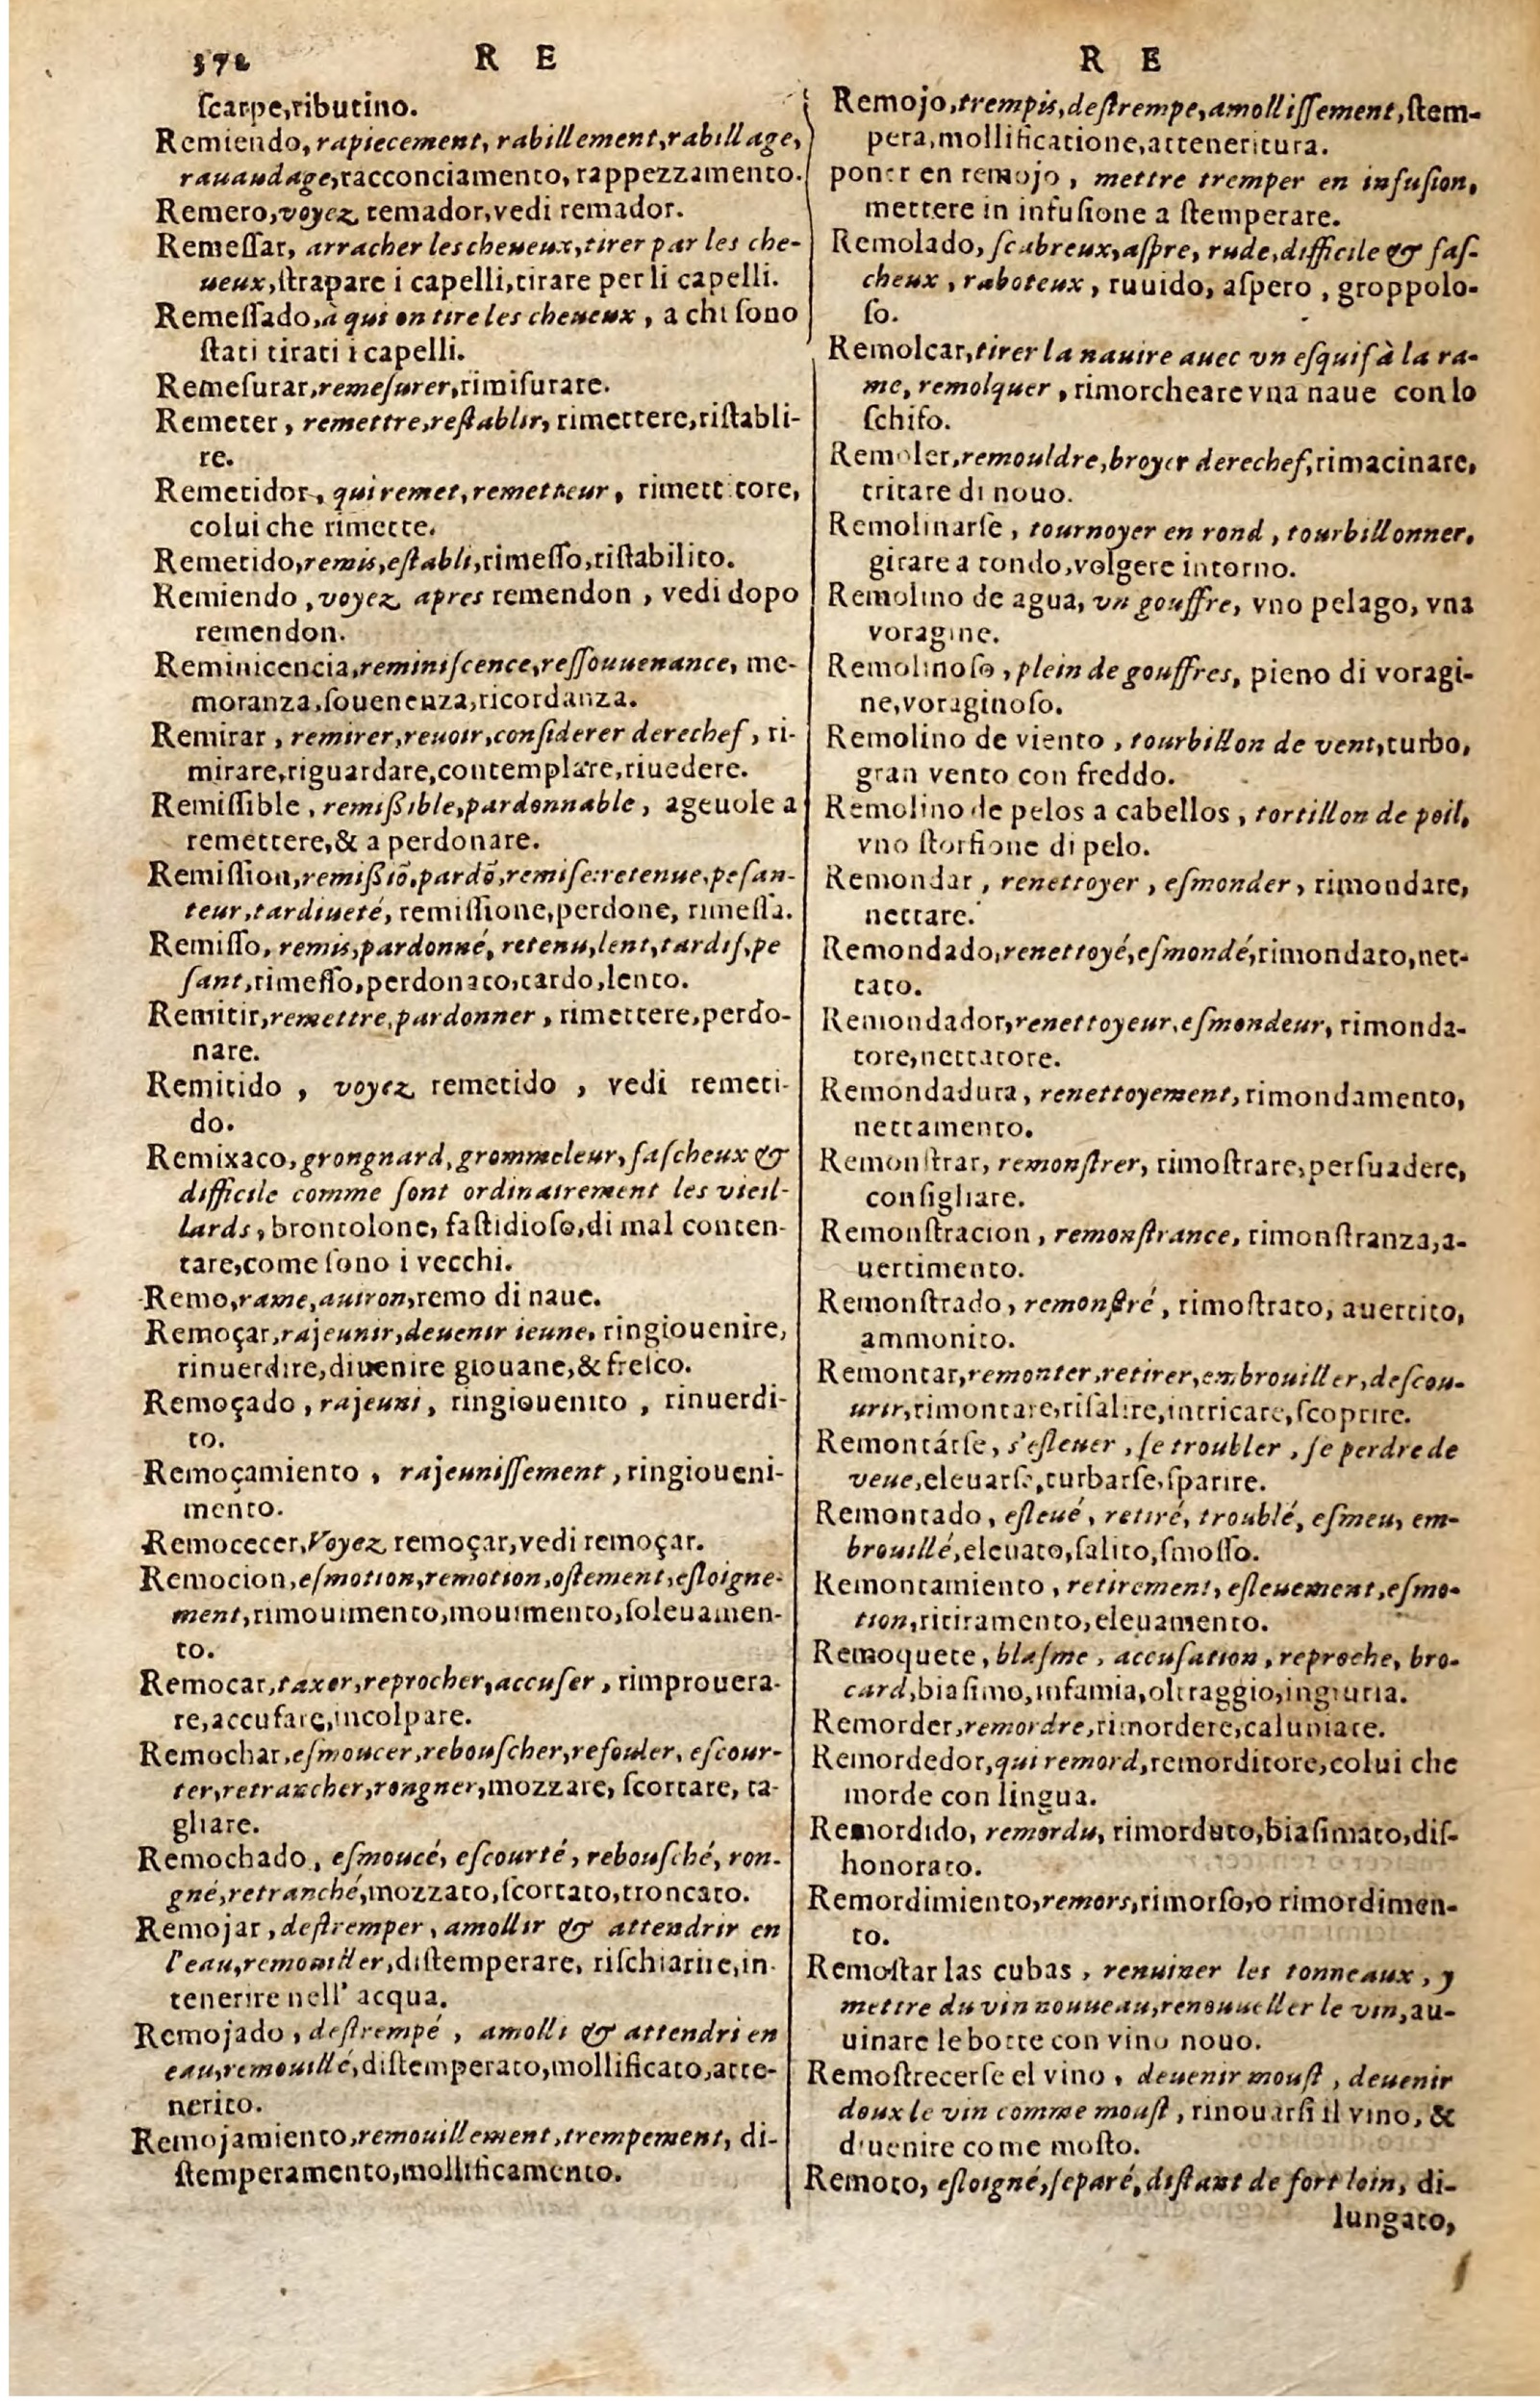 372 R E
R E
ſcarpe,ributino.
Remiendo, rapiecement, rabillement, rabillage,
rauaudage,racconciamento, rappezzamento.
Remero,voyez remador,vedi remador.
Remeſſar, arracher les cheueux,tirer par les che-
ueux,ſtrapare i capelli,tirare per li capelli.
Remeſſado,à qui on tire les cheueux, a chi ſono
ſtati tirati i capelli.
Remeſurar,remeſurer,rimiſurare.
Remeter, remettre,reſtablir, rimettere,riſtabli-
re.
Remetidor, qui remet,remetteur, rimettitore,
colui che rimette.
Remetido,remis,eſtabli,rimeſſo,riſtabilito.
Remiendo, voyez apres remendon, vedi dopo
remendon.
Reminicencia,reminiſcence,reſſouuenance, me-
moranza,ſouenenza,ricordanza.
Remirar, remirer,reuoir,conſiderer derechef, ri-
mirare,riguardare,contemplare,riuedere.
Remiſſible, remißible,pardonnable, ageuole a
remettere,& a perdonare.
Remiſſion,remißiõ,pardõ,remiſe:retenue,peſan-
teur,tardiueté, remiſſione,perdone, rimeſſa.
Remiſſo, remis,pardonné, retenu,lent,tardif,pe
ſant,rimeſſo,perdonato,tardo,lento.
Remitir,remettre,pardonner, rimettere,perdo-
nare.
Remitido, voyez remetido, vedi remeti-
do.
Remixaco,grongnard,grommeleur,faſcheux &
difficile comme ſont ordinairement les vieil-
lards, brontolone, faſtidioſo,di mal conten-
tare,come ſono i vecchi.
Remo,rame,auiron,remo di naue.
Remoçar,rajeunir,deuenir ieune, ringiouenire,
rinuerdire,diuenire giouane,& freſco.
Remoçado, rajeuni, ringiouenito, rinuerdi-
to.
Remoçamiento, rajeuniſſement, ringioueni-
mento.
Remocecer,Voyez remoçar,vedi remoçar.
Remocion,eſmotion,remotion,oſtement,eſloigne-
ment,rimouimento,mouimento,ſoleuamen-
to.
Remocar,taxer,reprocher,accuſer, rimprouera-
re,accuſare,incolpare.
Remochar,eſmoucer,rebouſcher,refouler, eſcour-
ter,retrancher,rongner,mozzare, ſcortare, ta-
gliare.
Remochado, eſmoucé, eſcourté, rebouſché, ron-
gné,retranché,mozzato,ſcortato,troncato.
Remojar, deſtremper, amollir & attendrir en
l'eau,remouiller,diſtemperare, riſchiarire,in-
tenerire nell' acqua.
Remojado, deſtrempé, amolli & attendri en
eau,remouillé,diſtemperato,mollificato,atte-
nerito.
Remojamiento,remouillement,trempement, di-
ſtemperamento,mollificamento.
Remojo,trempis,deſtrempe,amolliſſement,ſtem-
pera,mollificatione,atteneritura.
poner en remojo, mettre tremper en infuſion,
mettere in infuſione a ſtemperare.
Remolado, ſcabreux,aſpre, rude,difficile & faſ-
cheux, raboteux, ruuido, aſpero, groppolo-
ſo.
Remolcar,tirer la nauire auec vn eſquif à la ra-
me, remolquer, rimorcheare vna naue con lo
ſchifo.
Remoler,remouldre,broyer derechef,rimacinare,
tritare di nouo.
Remolinarſe, tournoyer en rond, tourbillonner,
girare a tondo,volgere intorno.
Remolino de agua, vn gouffre, vno pelago, vna
voragine.
Remolinoſo, plein de gouffres, pieno di voragi-
ne,voraginoſo.
Remolino de viento, tourbillon de vent,turbo,
gran vento con freddo.
Remolino de pelos a cabellos, tortillon de poil,
vno ſtorſione di pelo.
Remondar, renettoyer, eſmonder, rimondare,
nettare.
Remondado,renettoyé,eſmondé,rimondato,net-
tato.
Remondador,renettoyeur,eſmondeur, rimonda-
tore,nettatore.
Remondadura, renettoyement, rimondamento,
nettamento.
Remonſtrar, remonſtrer, rimoſtrare,perſuadere,
conſigliare.
Remonſtracion, remonſtrance, rimonſtranza,a-
uertimento.
Remonſtrado, remonſtré, rimoſtrato, auertito,
ammonito.
Remontar,remonter,retirer,embrouiller,deſcou-
urir,rimontare,riſalire,intricare,ſcoprire.
Remontárſe, s'eſleuer, ſe troubler, ſe perdre de
veue,eleuarſi,turbarſe,ſparire.
Remontado, eſleué, retiré, troublé, eſmeu, em-
brouillé,eleuato,ſalito,ſmoſſo.
Remontamiento, retirement, eſleuement,eſmo-
tion,ritiramento,eleuamento.
Remoquete, blaſme, accuſation, reproche, bro-
card,biaſimo,infamia,oltraggio,ingiuria.
Remorder,remordre,rimordere,caluniare.
Remordedor,qui remord,remorditore,colui che
morde con lingua.
Remordido, remordu, rimorduto,biaſimato,diſ-
honorato.
Remordimiento,remors,rimorſo,o rimordimen-
to.
Remoſtar las cubas, renuiner les tonneaux, y
mettre du vin nouueau,renouueller le vin,au-
uinare le botte con vino nouo.
Remoſtrecerſe el vino, deuenir mouſt, deuenir
doux le vin comme mouſt, rinouarſi il vino, &
diuenire come moſto.
Remoto, eſloigné,ſeparé,diſtant de fort loin, di-
lungato,